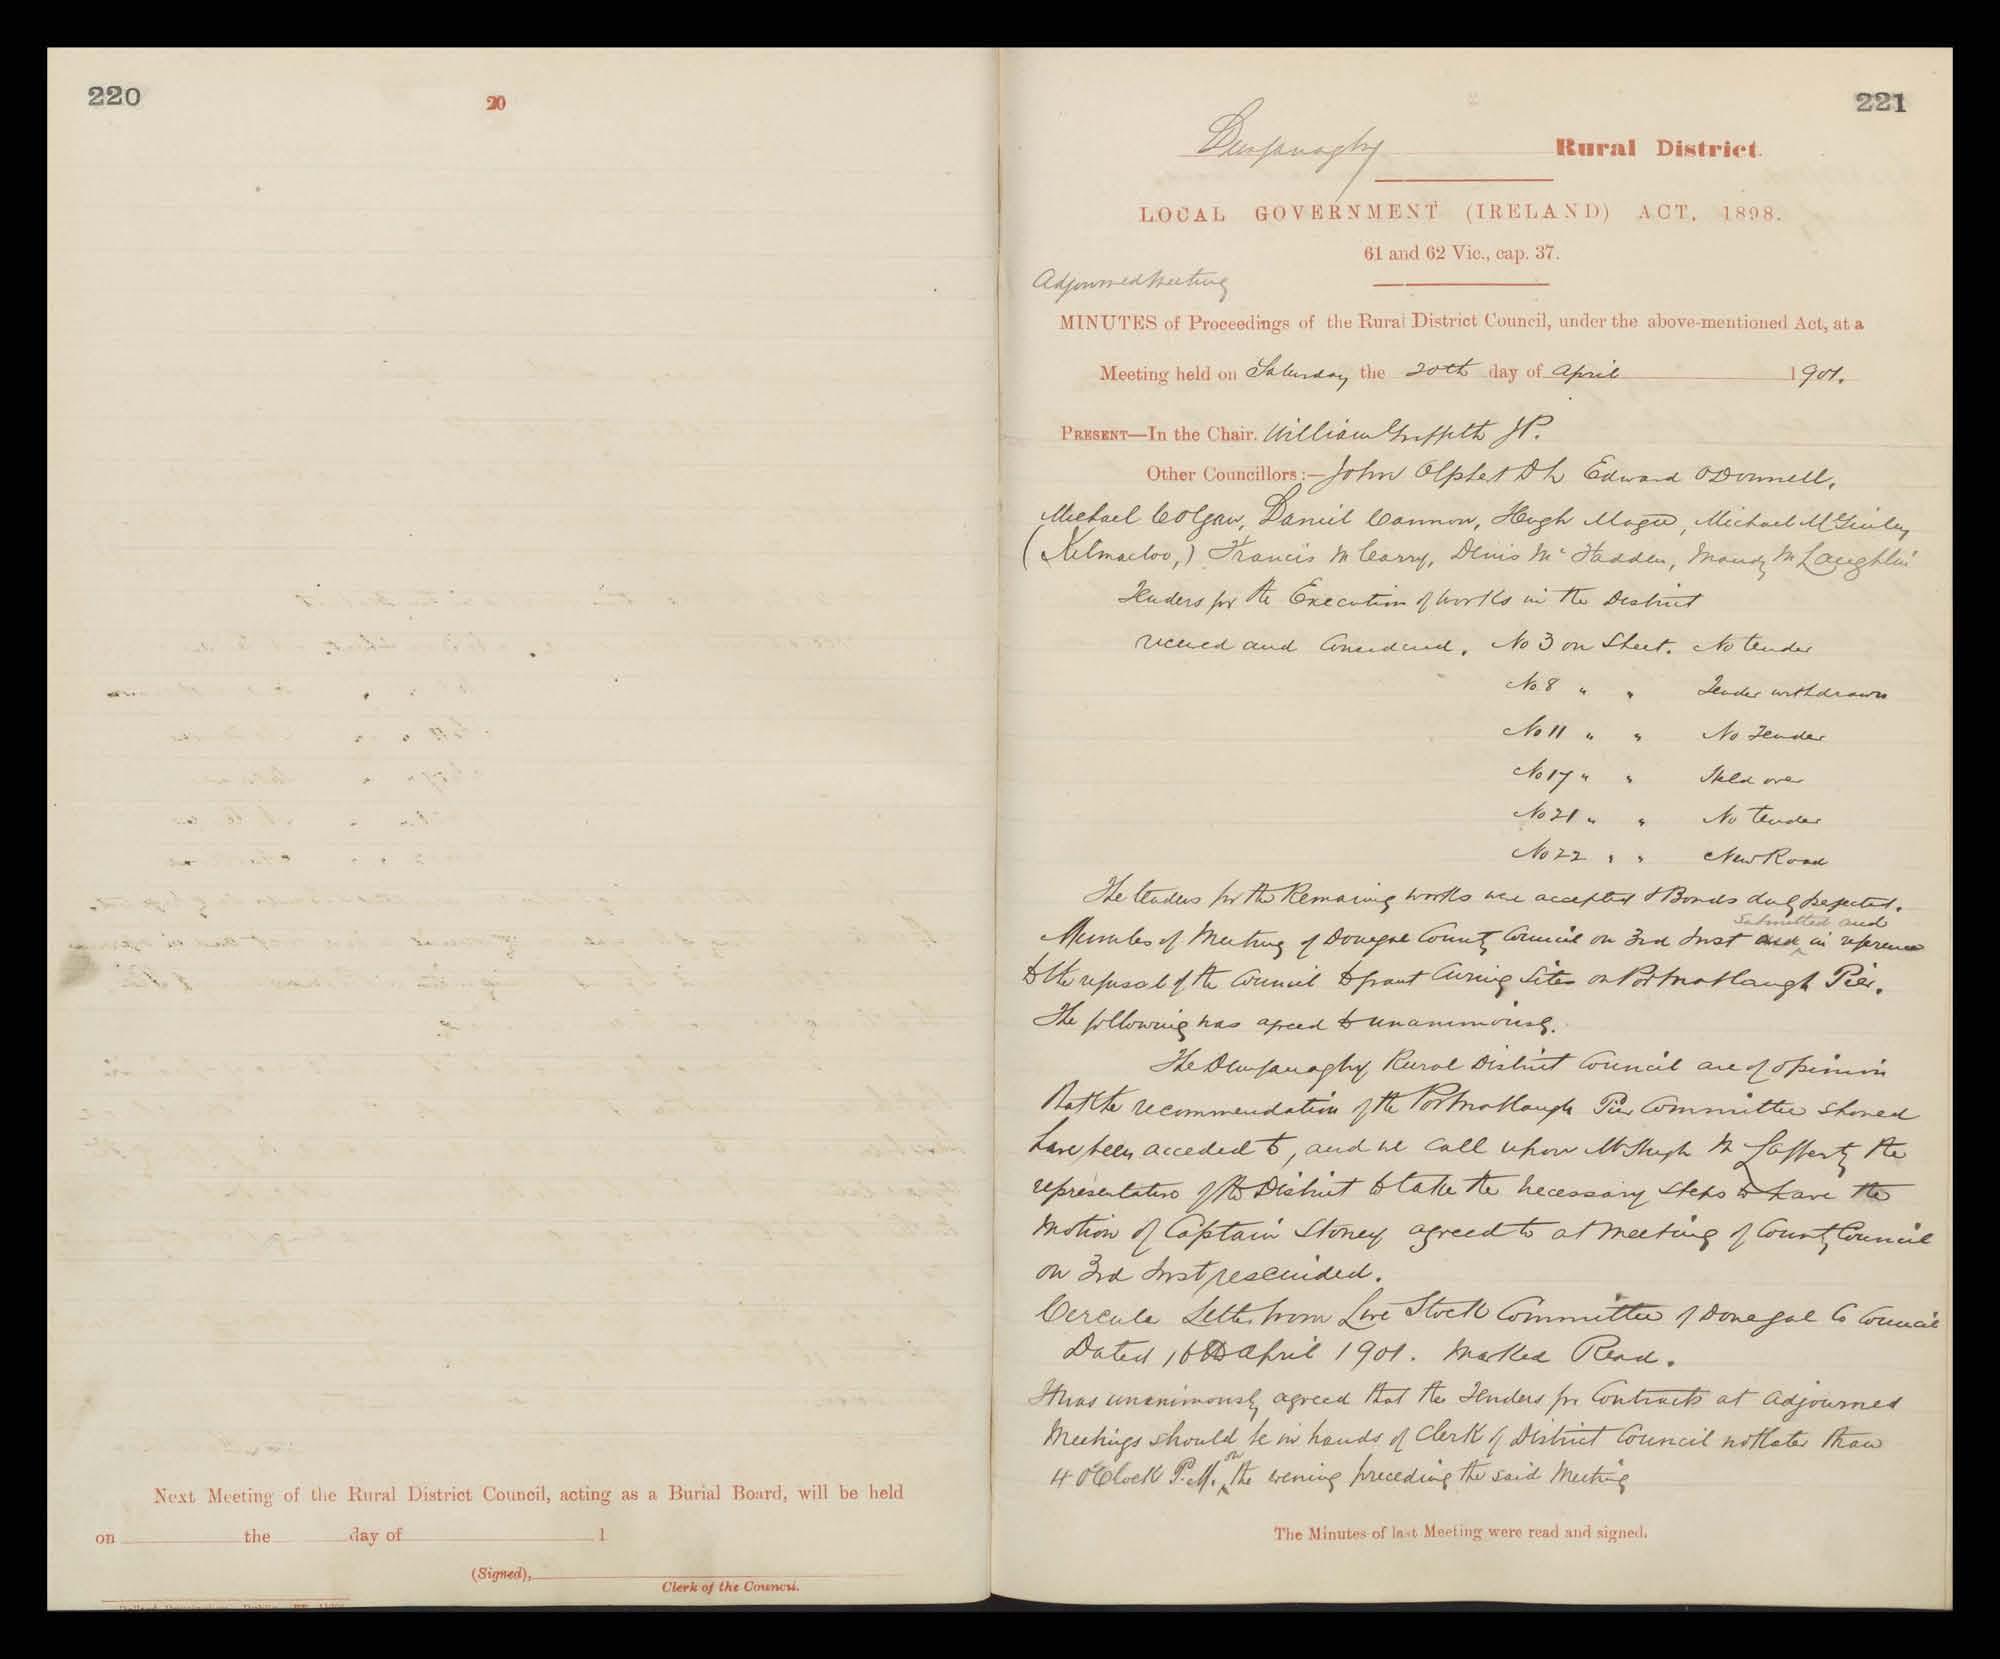 220
20
Next Meeting of the Rural District Council, acting as a Burial Board, will be held
on the day of 1
(Signed),
Clerk of the Council.
221
Dunfanaghy Rural District.
LOCAL GOVERNMENT (IRELAND) ACT, 1898.
61 and 62 Vic., cap. 37.
Adjourned Meeting
MINUTES of Proceedings of the Rural District Council, under the above-mentioned Act, at a
Meeting held on Saturday the 20th day of April 1901.
PRESENT—In the Chair. William Griffith JP.
Other Councillors:— John Olphert DL Edward O'Donnell,
Michael Colgan, Daniel Cannon, Hugh Magee, Michael McGinley
(Kilmacloo,) Francis McCarry, Denis McFadden, Manus McLaughlin
Tenders for the Execution of works in the District
received and Considered. No 3 on Sheet. No tender
No 8 " " Tender withdrawn
No 11 " " No Tender
No 17 " " Held over
No 21 " " No Tender
No 22 " " New Road
The tenders for the Remaining works were accepted & Bonds duly perfected.
submitted and
Minutes of Meeting of Donegal County Council on 3rd Inst in reference
to the refusal of the Council to grant Curing Sites on Portnablaugh Pier.
The following was agreed to unanimously.
The Dunfanaghy Rural District Council are of opinion
that the recommendation of the Portnablaugh Pier Committee should
have been acceded to, and we call upon Mr Hugh McLafferty the
representative of the District to take the necessary steps to have the
motion of Captain Stoney agreed to at meeting of County Council
on 3rd Inst rescinded.
Circular Letter from Live Stock Committee of Donegal Co Council
Dated 16th April 1901. Marked Read.
It was unanimously agreed that the Tenders for Contracts at adjourned
Meetings should be in hands of Clerk of District Council not later than
4 O'Clock P.M. on the evening preceding the said Meeting
The Minutes of last Meeting were read and signed.